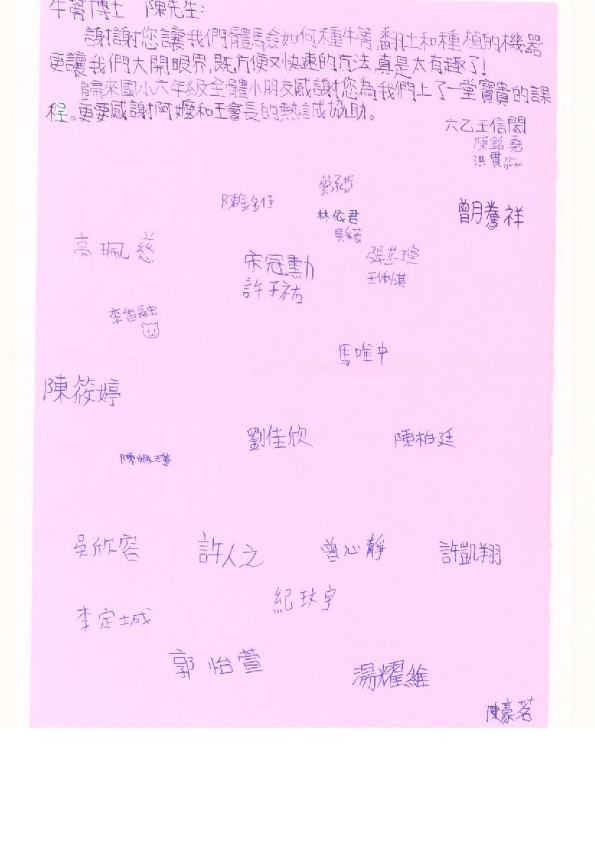 牛蒡博士 陳先生:
謝謝您讓我們體驗如何種牛蒡,翻土和種植的機器
更讓我們大開眼界,既方便又快速的方法,真是太有趣了!
歸來國小六年級全體小朋友感謝您為我們上了一堂寶貴的課
程。更要感謝阿嬤和王會長的熱誠協助。
六乙王信閎
陳銘堯
林依君
曾騰祥
高珮慈
宋冠勳
許子祐
馬唯中
陳筱婷
劉佳欣
陳柏廷
吳欣容
許人之
曾心靜
許凱翔
紀玟宇
李定城
郭怡萱
湯耀維
陳豪茗